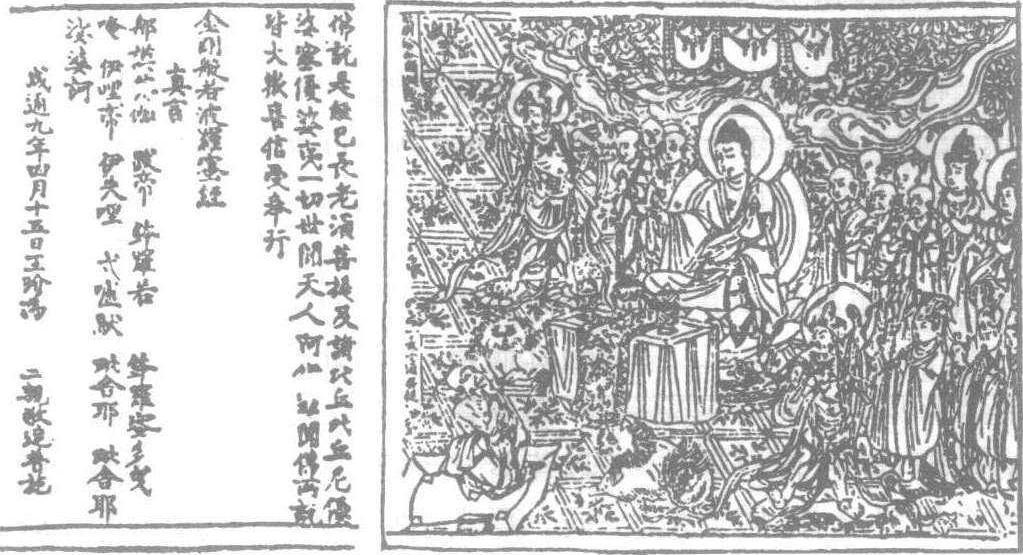 佛說是經已長老須菩提及諸比丘比丘尼優
婆塞優婆夷一切世間天人阿 聞佛所說
皆大歡喜信受奉行
金剛般若波羅蜜經
真言
那 伽 跋帝 鉢羅若 鉢羅蜜多曳
唵 伊哩帝 伊失哩 戍嚧馱 毗舍耶 毗舍耶
娑婆訶
咸通九年四月十五日王玠為 二親敬造普施